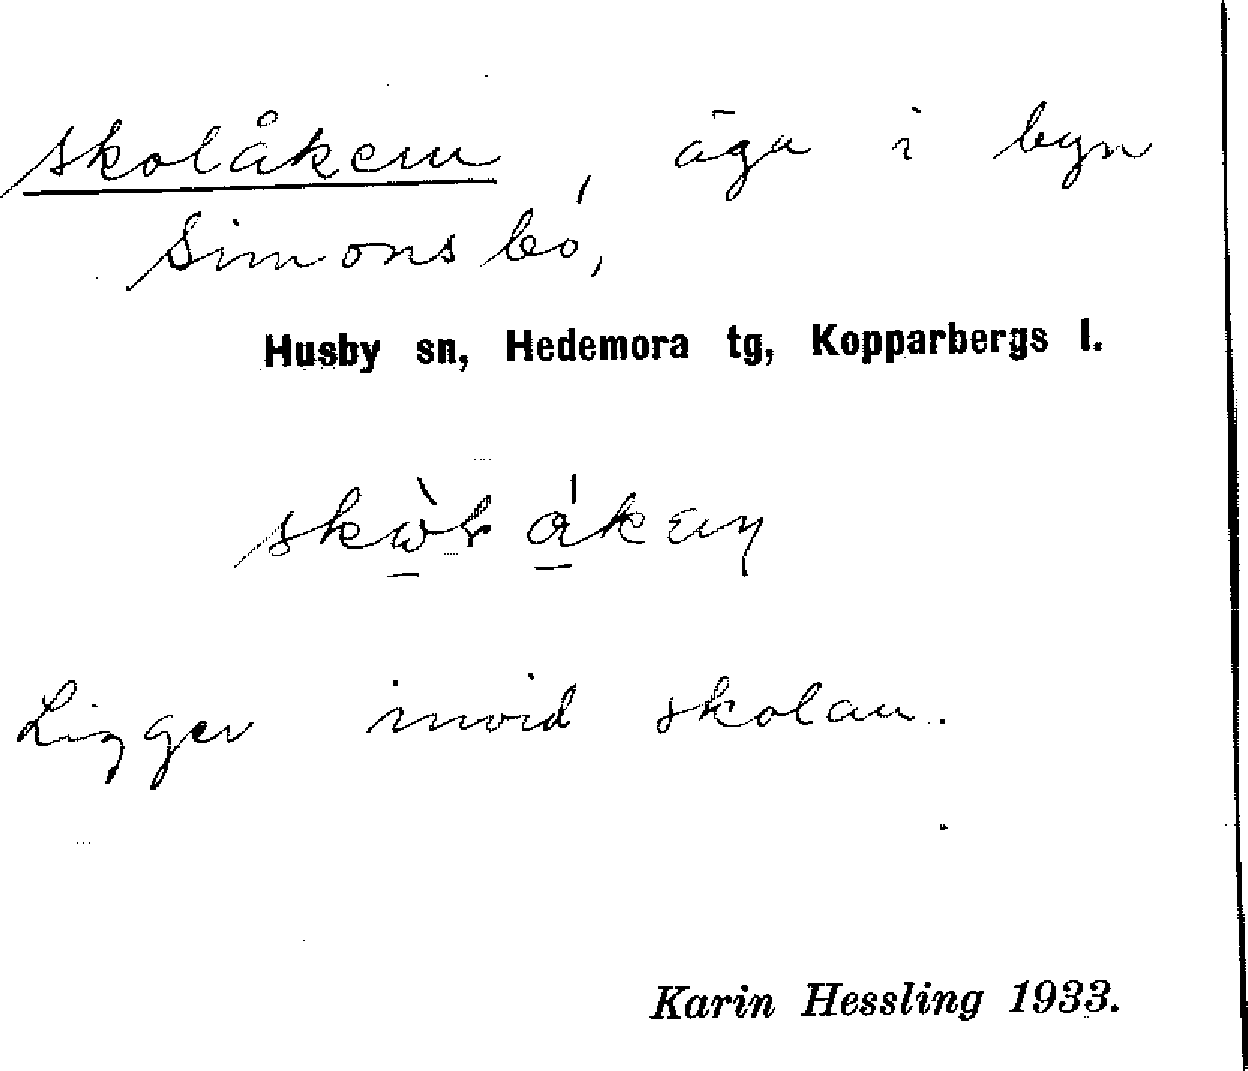 skolåkern, äga i byn
Simonsbo,
Husby sn, Hedemora tg, Kopparbergs l.
Ligger invid skolan.
Karin Hessling 1933.